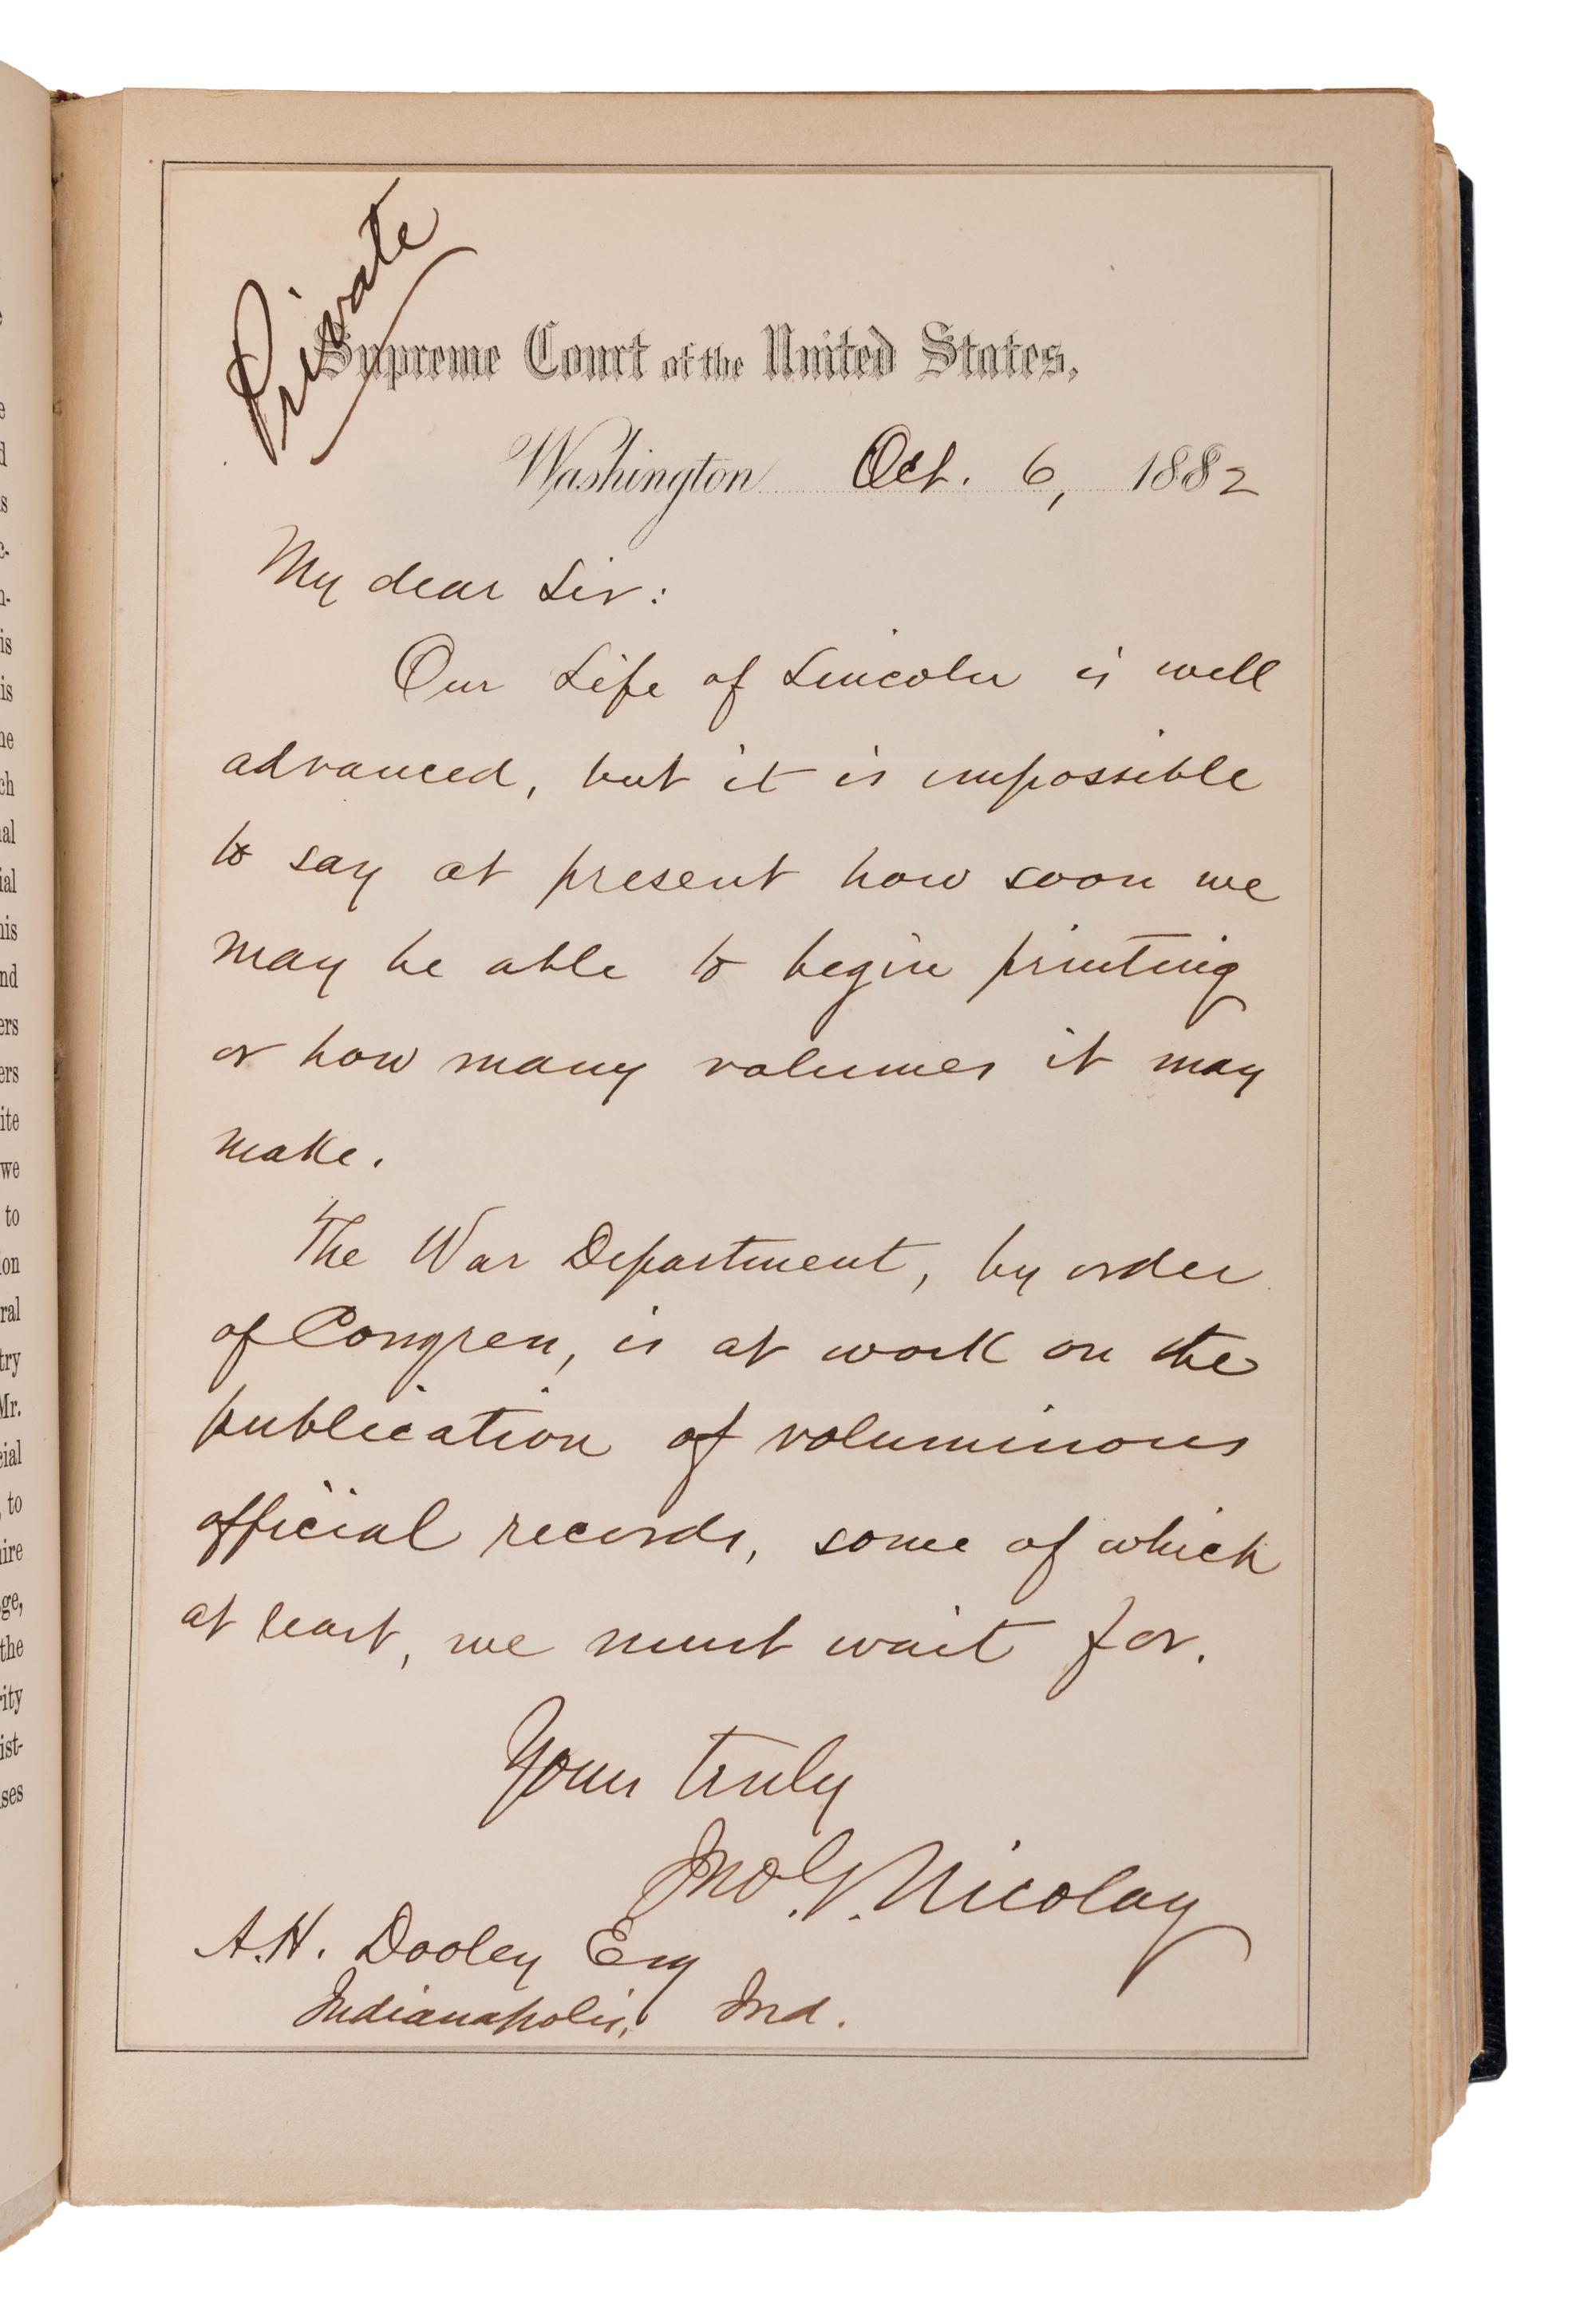 Private
Supreme Court of the United States,
Washington Oct. 6, 1882
My dear Sir:
Our Life of Lincoln is well
advanced, but it is impossible
to say at present how soon we
may be able to begin printing
or how many volumes it may
make.
The War Department, by order
of Congress, is at work on the
publication of voluminous
official records, some of which
at least, we must wait for.
Yours truly
Jno. G. Nicolay
A. H. Dooley Esq
Indianapolis, Ind.
is
is
ne
ch
al
ial
his
nd
ers
ers
ite
we
to
ion
ral
try
Mr.
cial
, to
uire
ge,
the
rity
ist-
ses